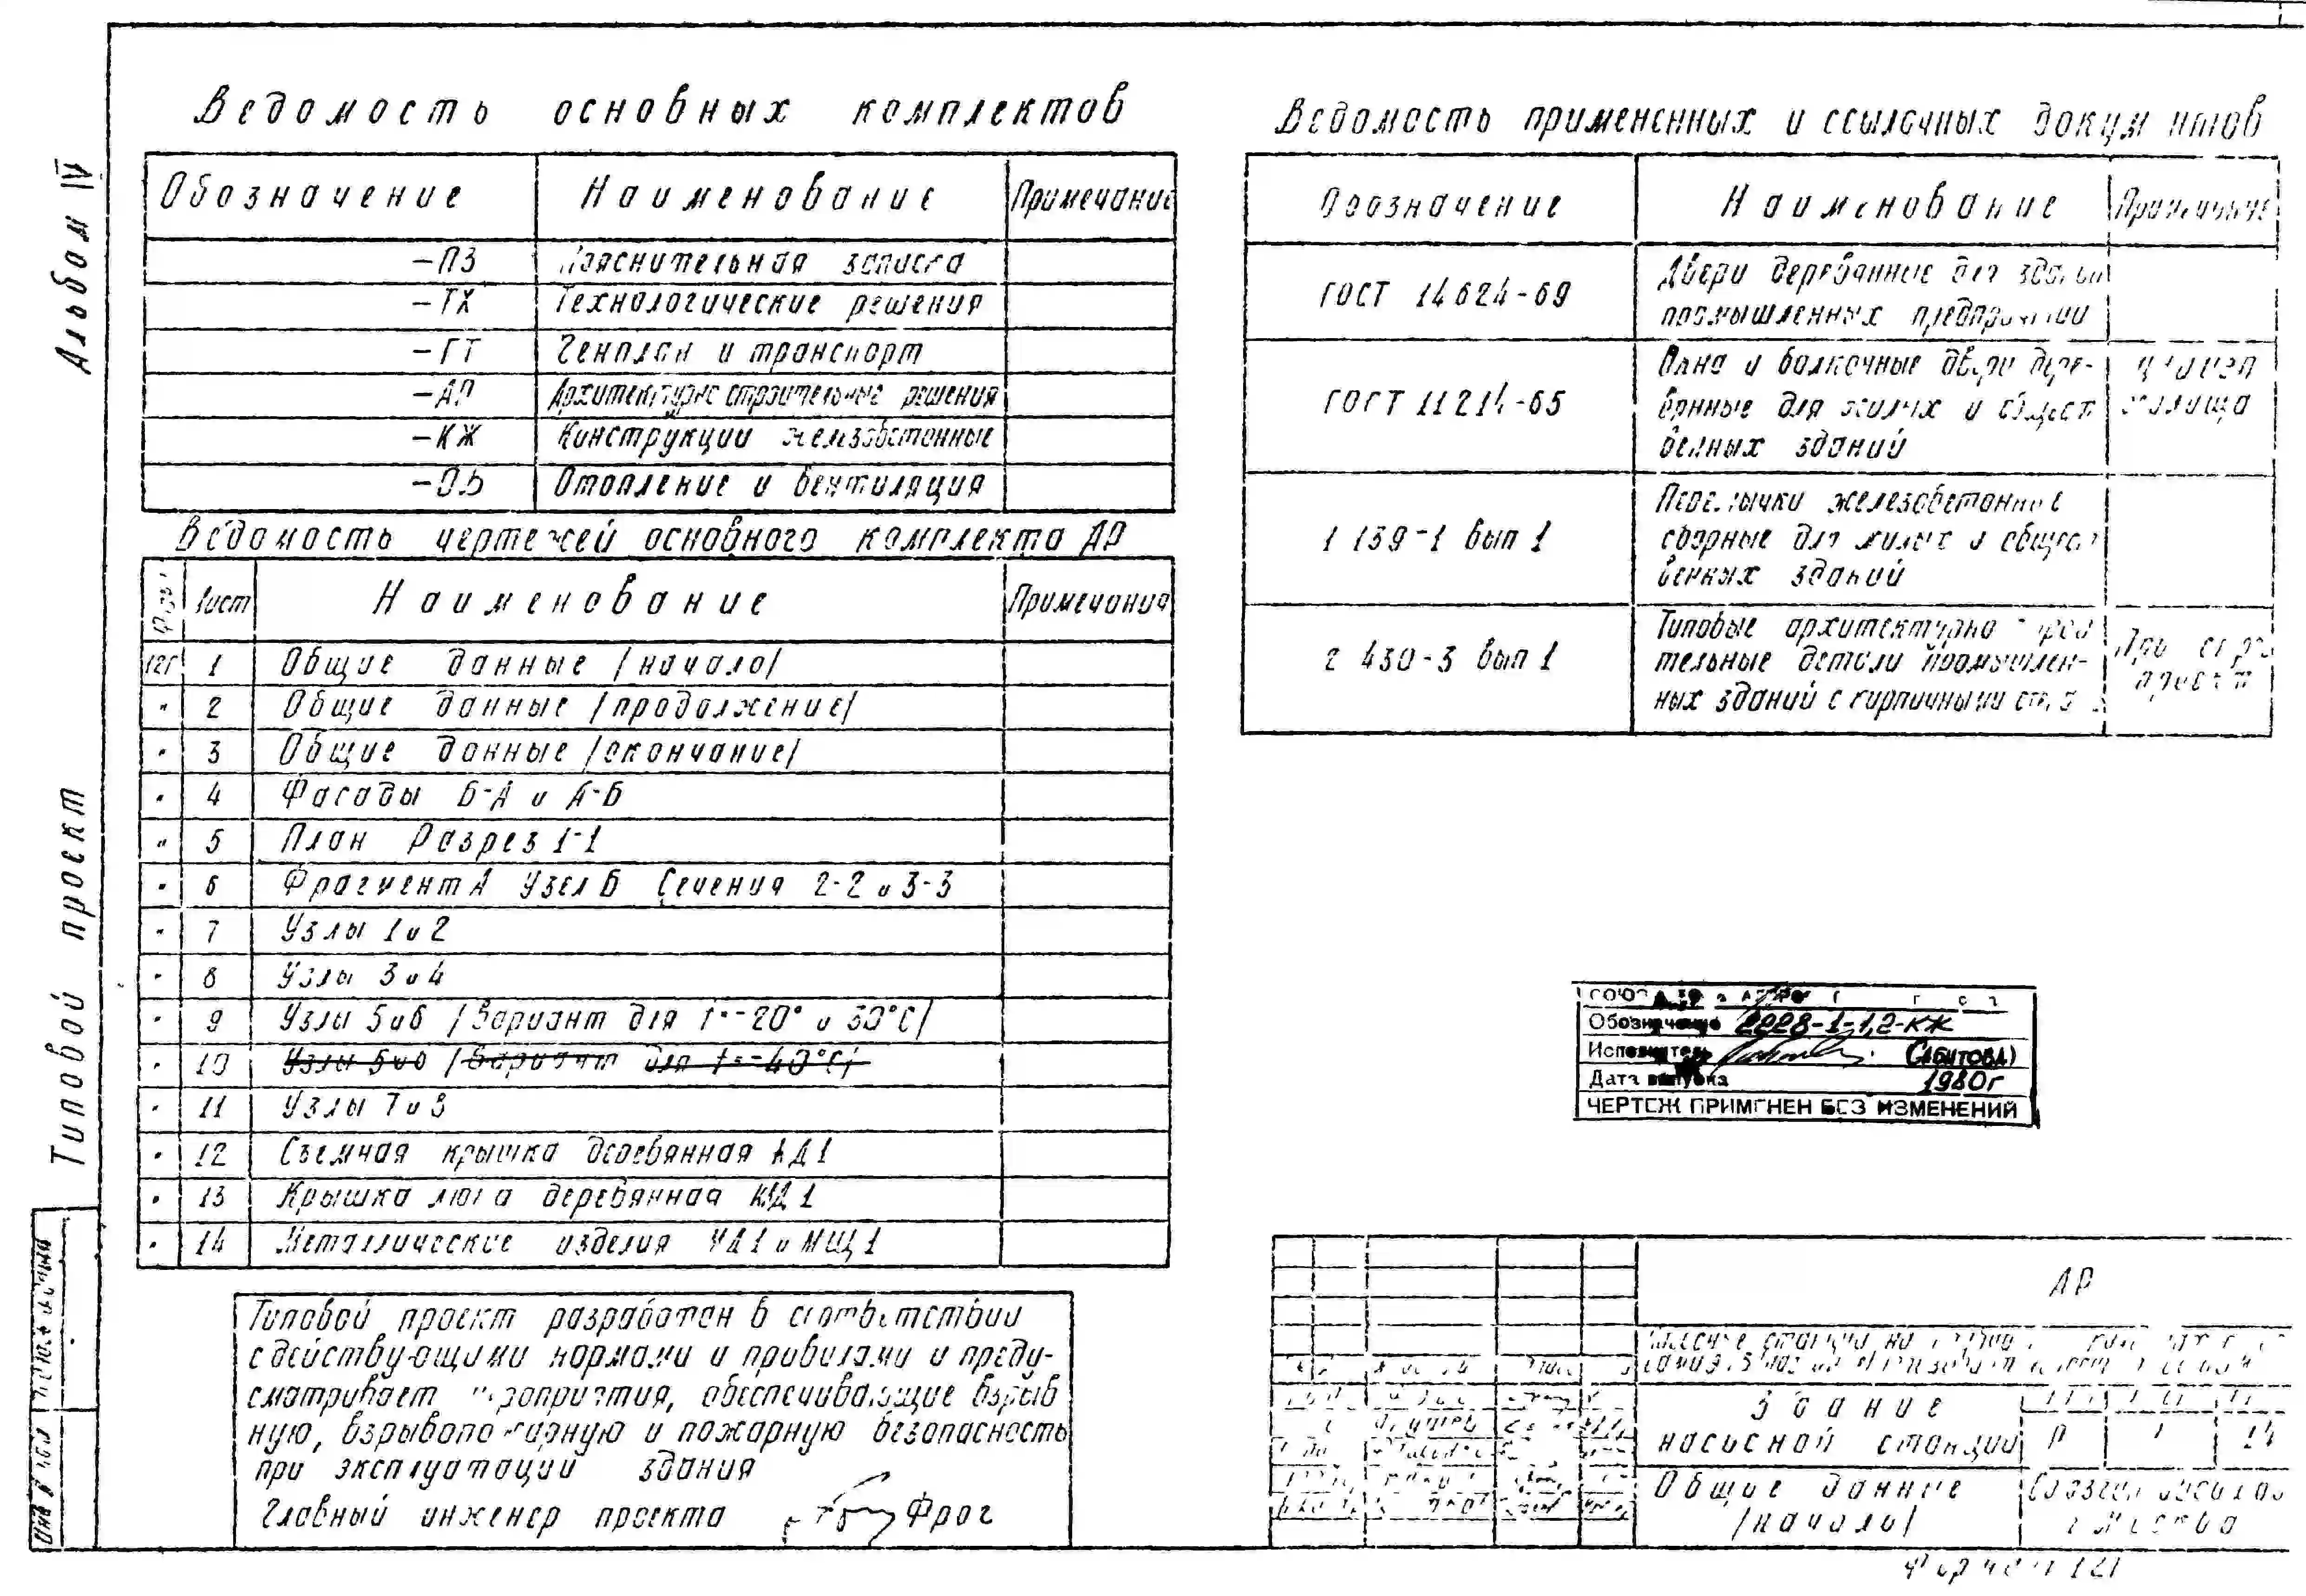 Альбом IV
Типовой проект
Ведомость основных комплектов
Обозначение Наименование Примечание
-ПЗ Пояснительная записка
-ТХ Технологические решения
-ГТ Генплан и транспорт
-АР Архитектурно строительные решения
-КЖ Конструкции железобетонные
-ОВ Отопление и вентиляция
Ведомость чертежей основного комплекта АР
Лист Наименование Примечания
12Г 1 Общие данные /начало/
" 2 Общие данные /продолжение/
" 3 Общие данные /окончание/
" 4 Фасады Б-А и А-Б
" 5 План Разрез 1-1
" 6 Фрагмент А Узел Б Сечения 2-2 и 3-3
" 7 Узлы 1 и 2
" 8 Узлы 3 и 4
" 9 Узлы 5 и 6 /Вариант для t=-20° и 30°С/
" 10 Узлы 5 и 6 /Вариант для t=-40°С/
" 11 Узлы 7 и 8
" 12 Съемная крышка деревянная КД1
" 13 Крышка люка деревянная КЩД1
" 14 Металлические изделия МД1 и МЩ1
Типовой проект разработан в соответствии
с действующими нормами и правилами и преду-
сматривает мероприятия, обеспечивающие взрыв
ную, взрывопожарную и пожарную безопасность
при эксплуатации здания
Главный инженер проекта Фрог
Ведомость примененных и ссылочных документов
Обозначение Наименование Примечание
ГОСТ 14624-69 Двери деревянные для зданий
промышленных предприятий
ГОСТ 11214-65 Окна и балконные двери дере-
вянные для жилых и общест
венных зданий
жилища
1 139-1 вып 1 Перемычки железобетонные
сборные для жилых и общест
венных зданий
2 430-3 вып 1 Типовые архитектурно строи
тельные детали промышлен-
ных зданий с кирпичными стен
Обозначение 2228-1-1,2-КЖ
Исполнитель (Сабитова)
Дата выпуска 1980г
ЧЕРТЕЖ ПРИМЕНЕН БЕЗ ИЗМЕНЕНИЙ
АР
Здание
насосной станции Р 1 14
Общие данные
/начало/
г Москва
Формат 12Г